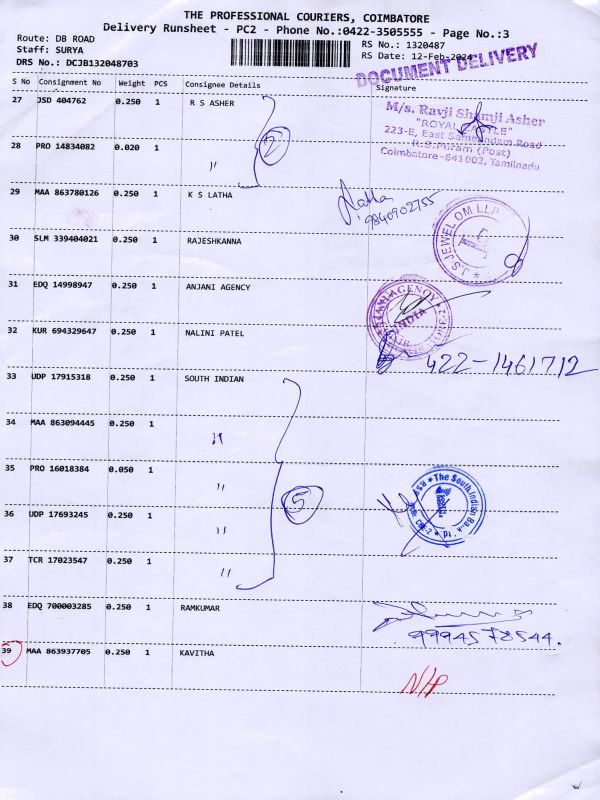 THE PROFESSIONAL COURIERS, COIMBATORE
Delivery Runsheet - PC2 - Phone No.:0422-3505555 - Page No.:3
Route: DB ROAD
Staff: SURYA
DRS No.: DCJB132048703
RS No.: 1320487
RS Date: 12-Feb-2024
DOCUMENT DELIVERY
S No Consignment No Weight PCS Consignee Details Signature
27 JSD 404762 0.250 1 R S ASHER
M/s. Ravji Shamji Asher
"ROYAL CASTLE"
223-E, East Sambandam Road
R.S.Puram (Post)
Coimbatore-641 002, Tamilnadu
2
28 PRO 14834082 0.020 1 "
29 MAA 863780126 0.250 1 K S LATHA
Latha
9840902755
30 SLM 339404021 0.250 1 RAJESHKANNA
J.S JEWEL OM LLP
31 EDQ 14998947 0.250 1 ANJANI AGENCY
INDIA
32 KUR 694329647 0.250 1 NALINI PATEL
422-1461712
33 UDP 17915318 0.250 1 SOUTH INDIAN
34 MAA 863094445 0.250 1 "
35 PRO 16018384 0.050 1 "
5
The South Indian Ba
36 UDP 17693245 0.250 1 "
37 TCR 17023547 0.250 1 "
38 EDQ 700003285 0.250 1 RAMKUMAR
9994578544.
39 MAA 863937705 0.250 1 KAVITHA
N/P